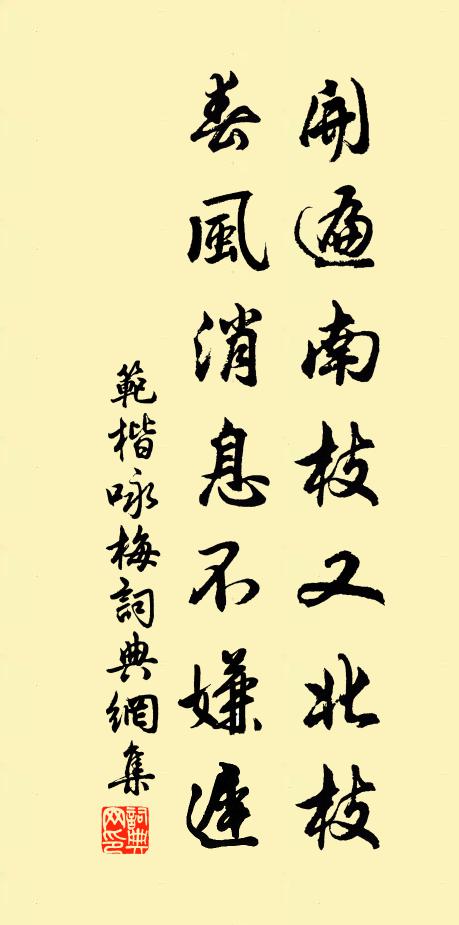 開遍南枝又北枝
春風消息不嫌遲
範楷咏梅詞典網集
詞典网印